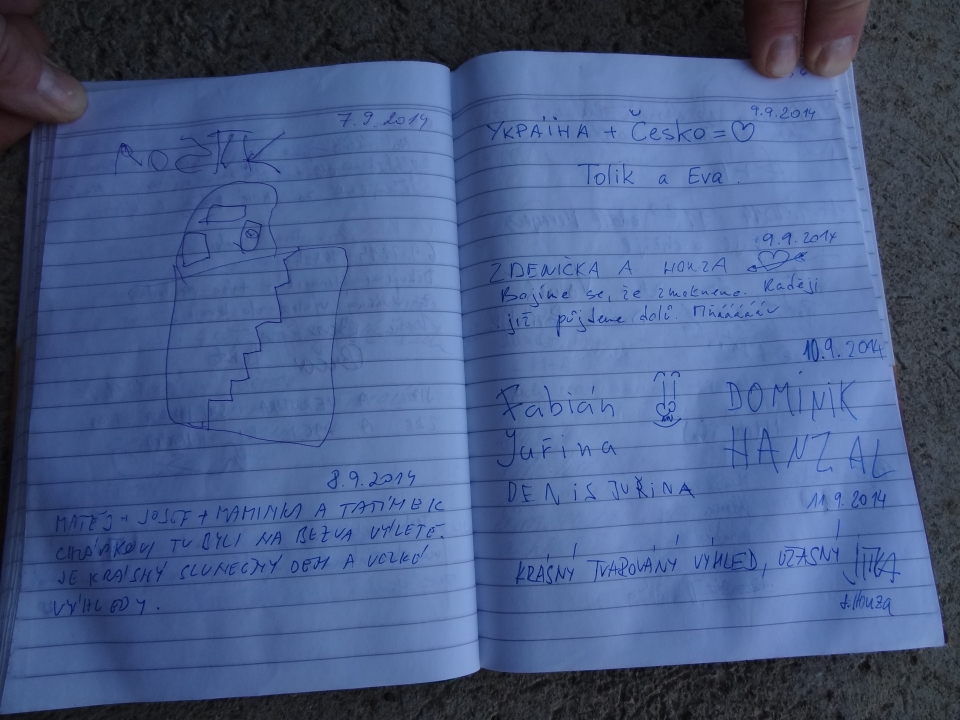 7.9.2014
8.9.2014
MATĚJ + JOSEF + MAMINKA A TATÍNEK
TU BYLI NA BEZVA VÝLETĚ.
JE KRÁSNÝ SLUNEČNÝ DEN A VELKÉ
VÝHLEDY.
9.9.2014
УКРАЇНА + Česko = ♡
Tolik a Eva.
9.9.2014
ZDENIČKA A HONZA
Bojíme se, že zmokneme. Raději
již půjdeme dolů.
10.9.2014
Fabián DOMINIK
Juřina HANZAL
DENIS JUŘINA
11.9.2014
KRÁSNÝ VÝHLED, ÚŽASNÝ JITKA
Houza